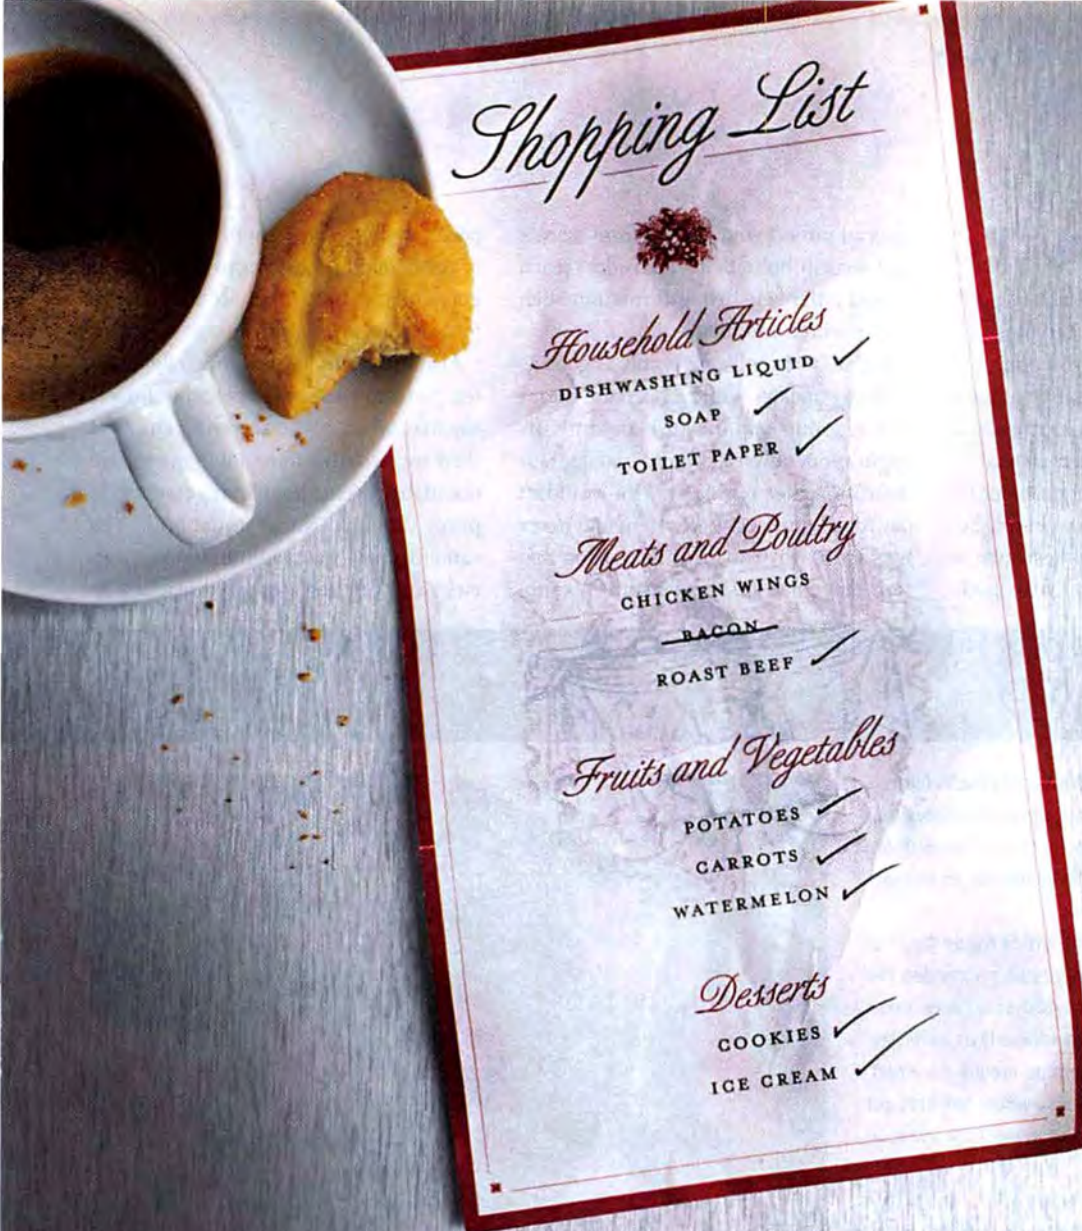 Shopping List
Household Articles
DISHWASHING LIQUID
SOAP
TOILET PAPER
Meats and Poultry
CHICKEN WINGS
BACON
ROAST BEEF
Fruits and Vegetables
POTATOES
CARROTS
WATERMELON
Desserts
COOKIES
ICE CREAM